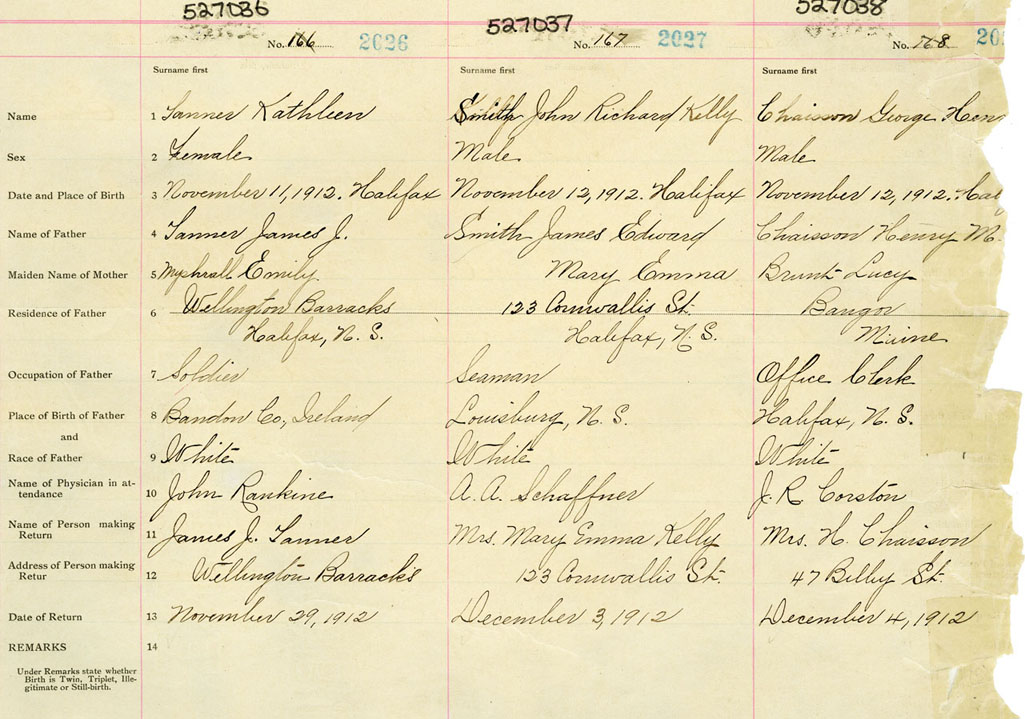 527036 527037 527038
No. 166 2026 No. 167 2027 No. 168 20
Surname first Surname first Surname first
Name 1 Tanner Kathleen Smith John Richard Kelly Chaisson George Hen
Sex 2 Female Male Male
Date and Place of Birth 3 November 11, 1912. Halifax November 12, 1912. Halifax November 12, 1912. Hal
Name of Father 4 Tanner James J. Smith James Edward Chaisson Henry M.
Maiden Name of Mother 5 Myshrall Emily Mary Emma Brunt Lucy
Residence of Father 6 Wellington Barracks 123 Cornwallis St. Bangor
Halifax, N. S. Halifax, N. S. Maine
Occupation of Father 7 Soldier Seaman Office Clerk
Place of Birth of Father 8 Bandon Co., Ireland Louisburg, N. S. Halifax, N. S.
and
Race of Father 9 White White White
Name of Physician in at-
tendance 10 John Rankine A. A. Schaffner J. R. Corston
Name of Person making
Return 11 James J. Tanner Mrs. Mary Emma Kelly Mrs. H. Chaisson
Address of Person making
Retur 12 Wellington Barracks 123 Cornwallis St. 47 Bilby St.
Date of Return 13 November 29, 1912 December 3, 1912 December 4, 1912
REMARKS 14
Under Remarks state whether
Birth is Twin, Triplet, Ille-
gitimate or Still-birth.